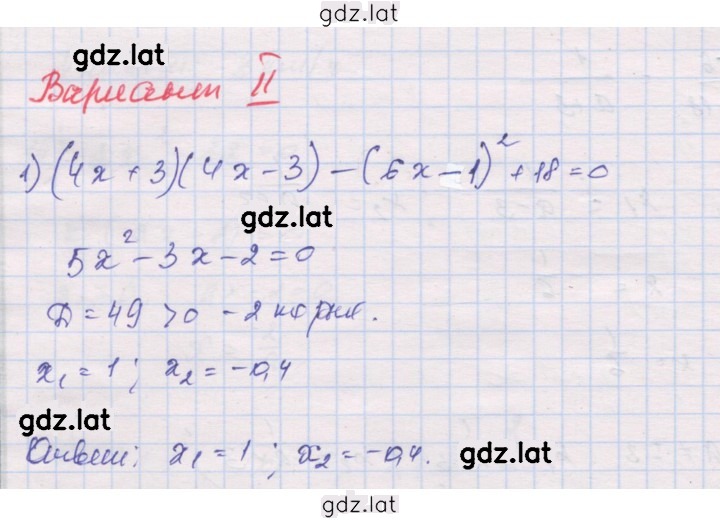 gdz.lat
gdz.lat
Вариант II
1) (4x + 3)(4x - 3) - (6x - 1)² + 18 = 0
gdz.lat
5x² - 3x - 2 = 0
Д = 49 > 0 - 2 корня.
x₁ = 1; x₂ = -0,4
gdz.lat
Ответ: x₁ = 1; x₂ = -0,4.
gdz.lat
gdz.lat